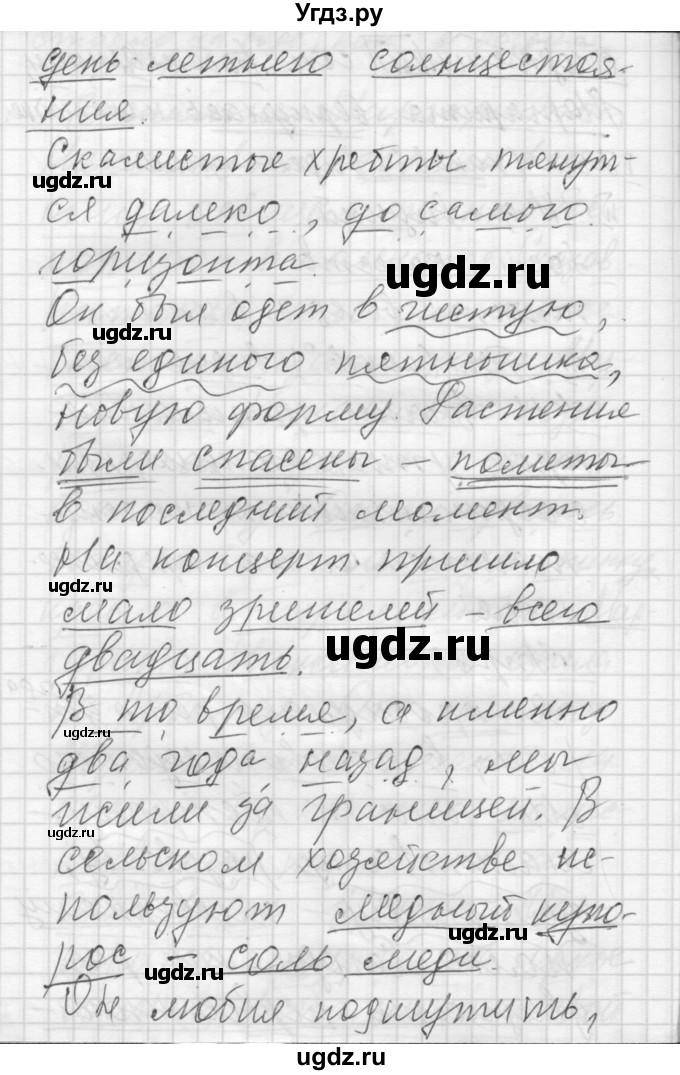 Угдз.ру
день летнего солнцестоя-
ния.
Скалистые хребты тянут-
ugdz.ru
ся далеко, до самого
горизонта.
ugdz.ru
Он был одет в чистую,
ugdz.ru
без единого пятнышка,
новую форму. Растения
были спасены – политы
в последний момент.
На концерт пришло
ugdz.ru
мало зрителей – всего
ugdz.ru
двадцать.
В то время, а именно
ugdz.ru
два года назад, мы
жили за границей. В
ugdz.ru
сельском хозяйстве ис-
пользуют медный купо-
ugdz.ru
рос – соль меди.
ugdz.ru
Он любил подшутить,
ugdz.ru